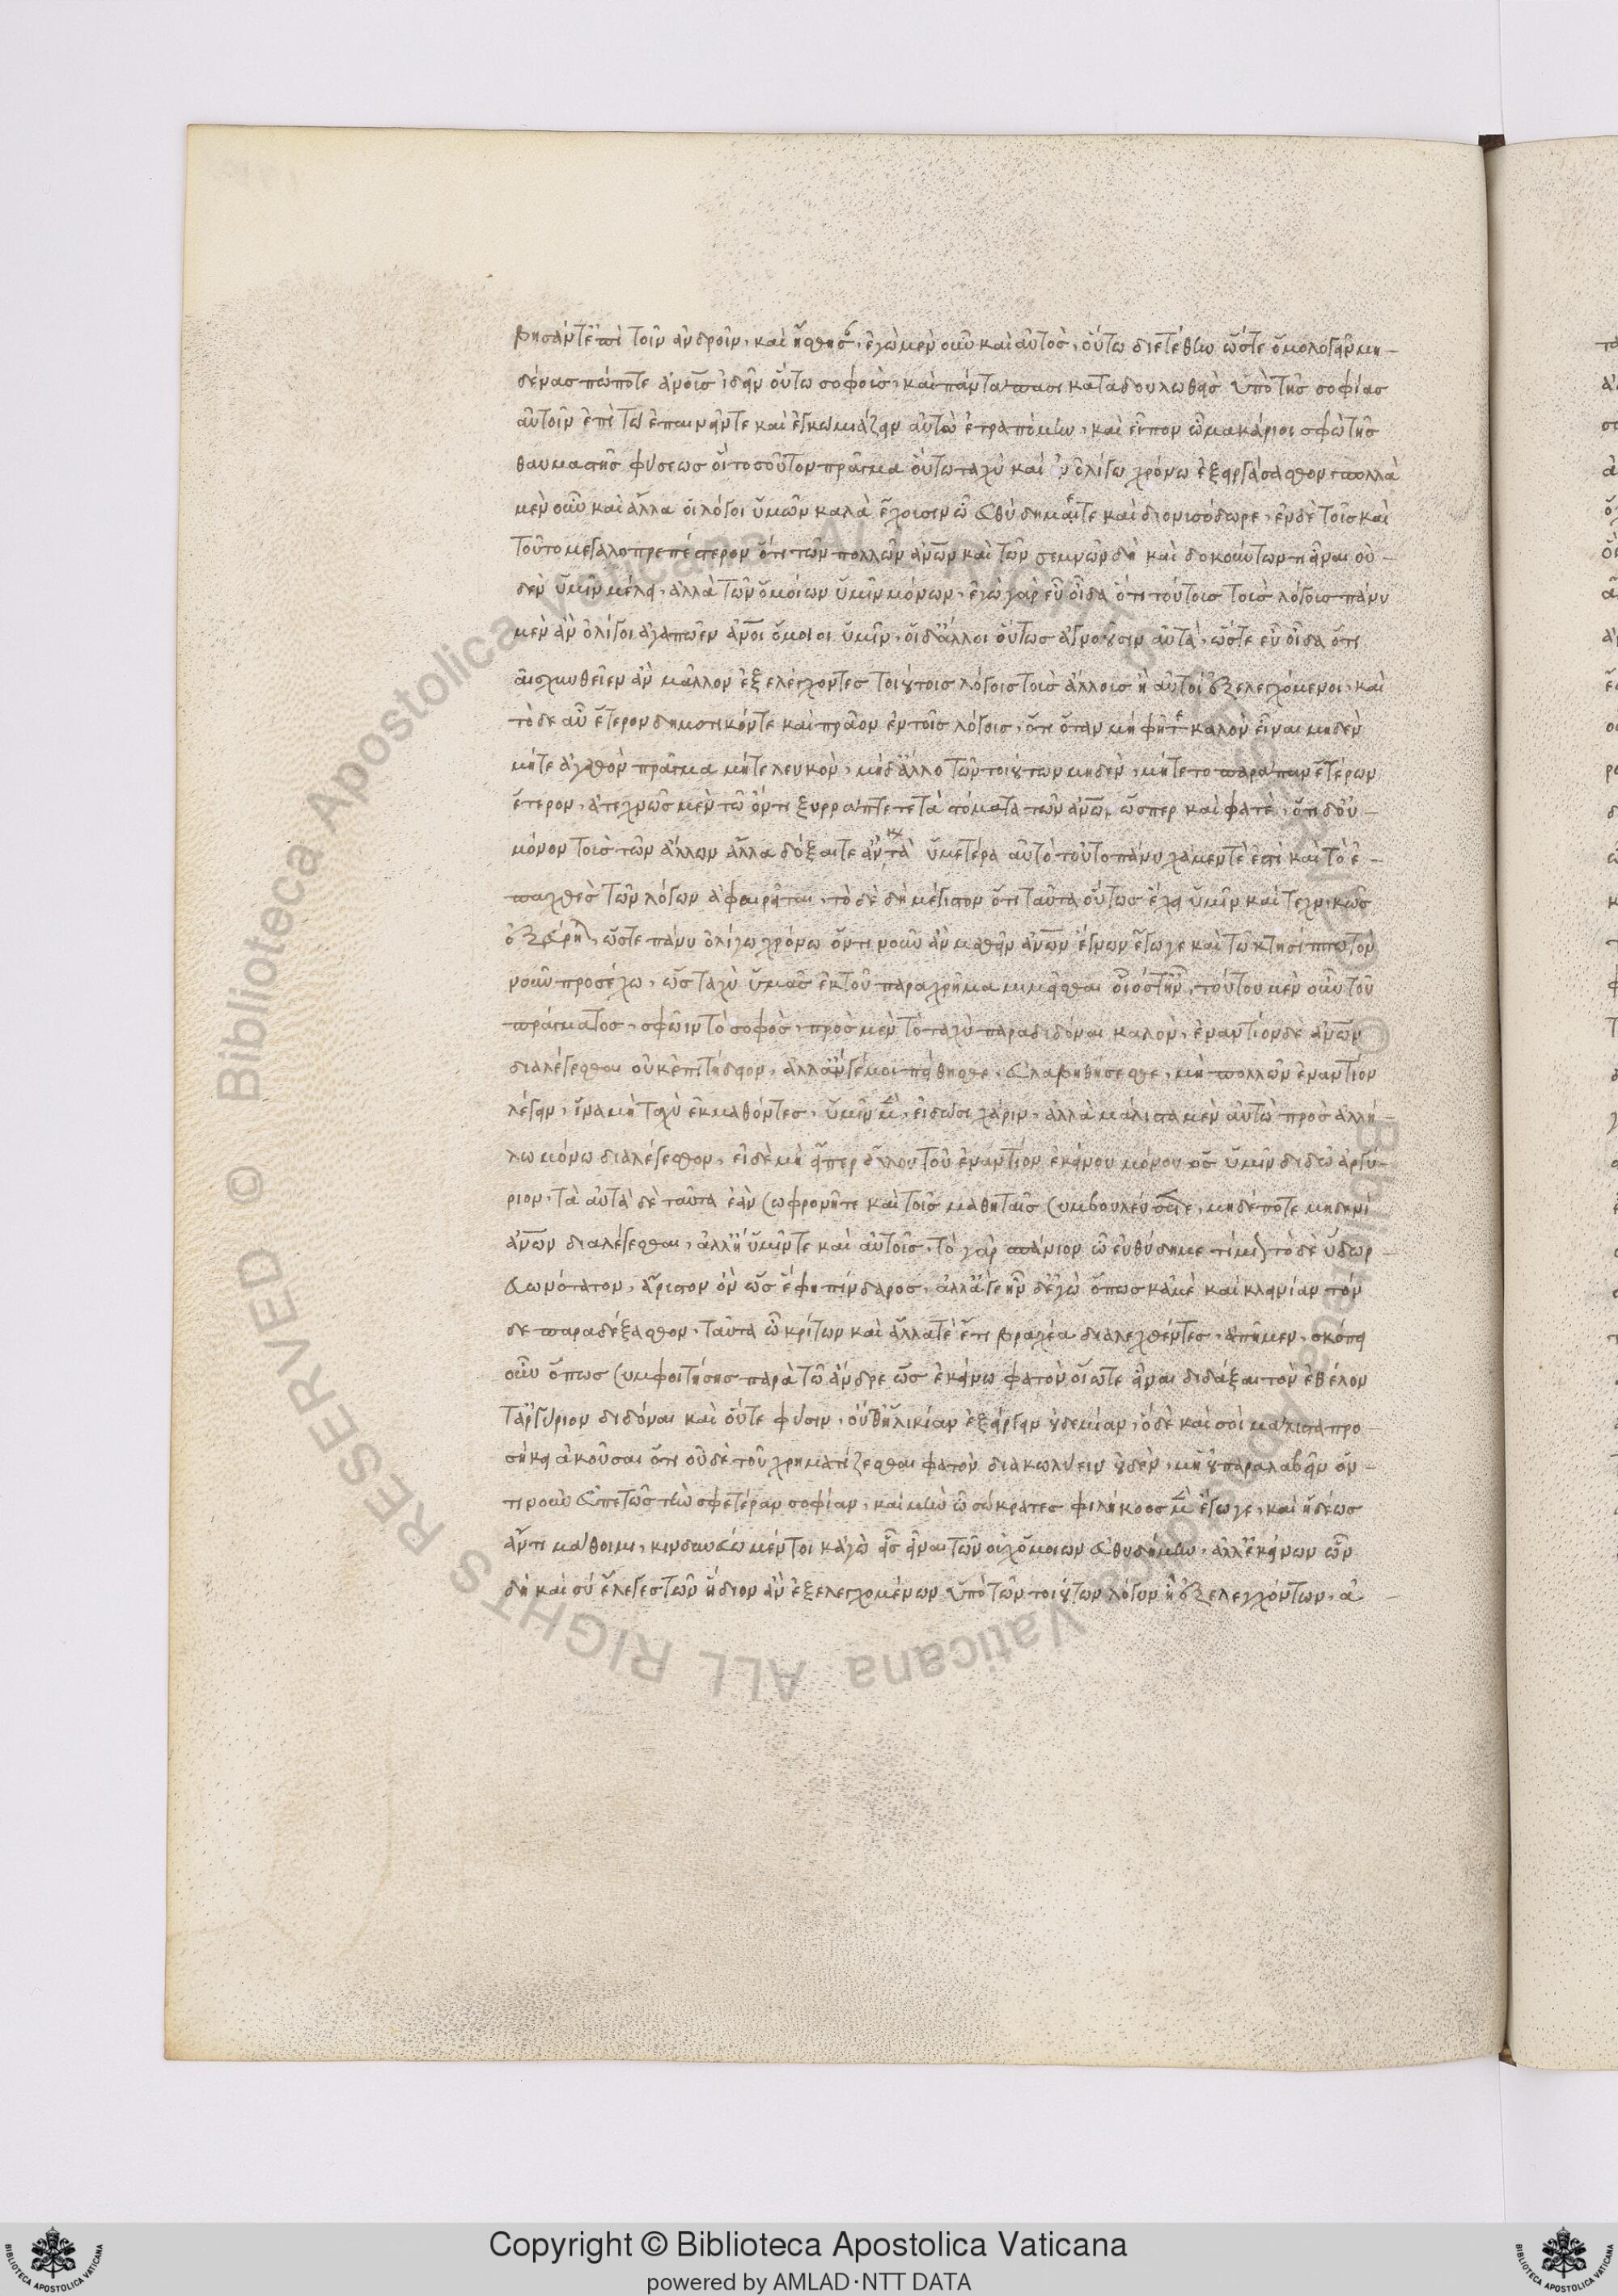 βησάντ' ἐπὶ τοῖν ἀνδροῖν, καὶ ἥσθησαν, ἐγὼ μὲν οὖν καὶ αὐτὸς, οὕτω διετέθην ὥστε ὁμολογεῖν μη-
δένας πώποτε ἀνους ἰδεῖν οὕτω σοφοὺς, καὶ παντάπασι καταδουλωθεὶς ὑπὸ τῆς σοφίας
αὐτοῖν ἐπὶ τὸ ἐπαινεῖν τε καὶ ἐγκωμιάζειν αὐτὼ ἐτραπόμην, καὶ εἶπον ὦ μακάριοι σφὼ τῆς
θαυμαστῆς φύσεως οἳ τοσοῦτον πρᾶγμα οὕτω ταχὺ καὶ ἐν ὀλίγω χρόνω ἐξείργασθον πολλὰ
μὲν οὖν καὶ ἄλλα οἱ λόγοι ὑμῶν καλὰ ἔχουσιν ὦ εὐθύδημέ τε καὶ διονυσόδωρε, ἐν δὲ τοῖς καὶ
τοῦτο μεγαλοπρεπέστερον ὅτι τῶν πολλῶν ἀνων καὶ τῶν σεμνῶν δὴ καὶ δοκούντων τι εἶναι οὐ-
δὲν ὑμῖν μέλει, ἀλλὰ τῶν ὁμοίων ὑμῖν μόνων, ἐγὼ γὰρ εὖ οἶδα ὅτι τούτοις τοὺς λόγους πάνυ
μὲν ἂν ὀλίγοι ἀγαπῶεν ἀνοι ὅμοιοι ὑμῖν, οἱ δ' ἄλλοι οὕτως ἀγνοοῦσιν αὐτὰ, ὥστε εὖ οἶδα ὅτι
αἰσχυνθεῖεν ἂν μᾶλλον ἐξελέγχοντες τοιούτοις λόγοις τοὺς ἄλλους ἢ αὐτοὶ ἐξελεγχόμενοι, καὶ
τόδε αὖ ἕτερον δημοτικόν τε καὶ πρᾶον ἐν τοῖς λόγοις, ὅτι ὅταν μὴ φῆτε καλὸν εἶναι μηδὲν
μήτε ἀγαθὸν πρᾶγμα μήτε λευκὸν, μήδ' ἄλλο τῶν τοιούτων μηδὲν, μήτε τὸ παράπαν ἑτέρων
ἕτερον, ἀτεχνῶς μὲν τῶ ὄντι ξυρράπτετε τὰ στόματα τῶν ἀνων, ὥσπερ καὶ φατέ, ὅτι δ' οὐ
μόνον τοὺς τῶν ἄλλων ἀλλὰ δόξαιτε ἂν καὶ τὰ ὑμέτερα αὐτὸ τοῦτο πάνυ χάριέν τέ ἐστι καὶ τὸ ἐ-
παχθὲς τῶν λόγων ἀφαιρεῖται, τὸ δὲ δὴ μέγιστον ὅτι ταῦτα οὕτως ἔχει ὑμῖν καὶ τεχνικῶς
ἐξεύρηται, ὥστε πάνυ ὀλίγω χρόνω ὅντιν οὖν ἂν μαθεῖν ἀνων ἔγνων ἔγωγε καὶ τῶ κτησίππω τὸν
νοῦν προσέχω, ὡς ταχὺ ὑμᾶς ἐκ τοῦ παραχρῆμα μιμεῖσθαι οἷός τ' ἦν, τούτου μὲν οὖν τοῦ
πράγματος, σφῶιν τὸ σοφὸς, πρὸς μὲν τὸ ταχὺ παραδιδόναι καλὸν, ἐναντίον δὲ ἀνων
διαλέγεσθαι οὐκ ἐπιτήδειον, ἀλλ' ἄν γέ μοι πείθησθε, εὐλαβηθήσεσθε, μὴ πολλῶν ἐναντίον
λέγειν, ἵνα μὴ ταχὺ ἐκμαθόντες, ὑμῖν μὴ, εἰδῶσι χάριν, ἀλλὰ μάλιστα μὲν αὐτὼ πρὸς ἀλλή-
λω μόνω διαλέγεσθον, εἰ δὲ μὴ εἴπερ ἄλλου του ἐναντίον ἐκείνου μόνου ὃς ὑμῖν διδῶ ἀργύ-
ριον, τὰ αὐτὰ δὲ ταῦτα ἐὰν σωφρονῆτε καὶ τοῖς μαθηταῖς συμβουλεύσετε, μηδέποτε μηδενὶ
ἀνων διαλέγεσθαι, ἀλλ' ἢ ὑμῖν τε καὶ αὐτοῖς, τὸ γὰρ σπάνιον ὦ εὐθύδημε τίμιον τὸ δὲ ὕδωρ
εὐωνότατον, ἄριστον ὂν ὡς ἔφη πίνδαρος, ἀλλ' ἄγε ἦν δ' ἐγὼ ὅπως κἀμὲ καὶ κλεινίαν τόν
δε παραδέξεσθον, ταῦτα ὦ κρίτων καὶ ἄλλα τὲ ἔτι βραχέα διαλεχθέντες, ἀπῆιμεν, σκόπει
οὖν ὅπως συμφοιτήσης παρὰ τὼ ἄνδρε ὡς ἐκείνω φατὸν οἵω τε εἶναι διδάξαι τὸν ἐθέλον
τ' ἀργύριον διδόναι καὶ οὔτε φύσιν, οὔθ' ἡλικίαν ἐξείργειν οὐδεμίαν, ὃ δὲ καὶ σοὶ μάλιστα προ-
σήκει ἀκοῦσαι ὅτι οὐδὲ τοῦ χρηματίζεσθαι φατὸν διακωλύειν οὐδὲν, μὴ οὐ παραλαβεῖν ὅν-
τιν οὖν εὐπετῶς τὴν σφετέραν σοφίαν, καὶ μὴν ὦ σώκρατες φιλήκοος μὲν ἔγωγε, καὶ ἡδέως
ἄν τι μάθοιμι, κινδυνεύω μέντοι κἀγὼ εἷς εἶναι τῶν οὐχ ὁμοίων εὐθυδήμω, ἀλλ' ἐκείνων ὧν
δὴ καὶ σὺ ἔλεγες τῶν ἥδιον ἂν ἐξελεγχομένων ὑπὸ τῶν τοιούτων λόγων ἢ ἐξελεγχόντων, ἀ-
Copyright © Biblioteca Apostolica Vaticana
powered by AMLAD·NTT DATA